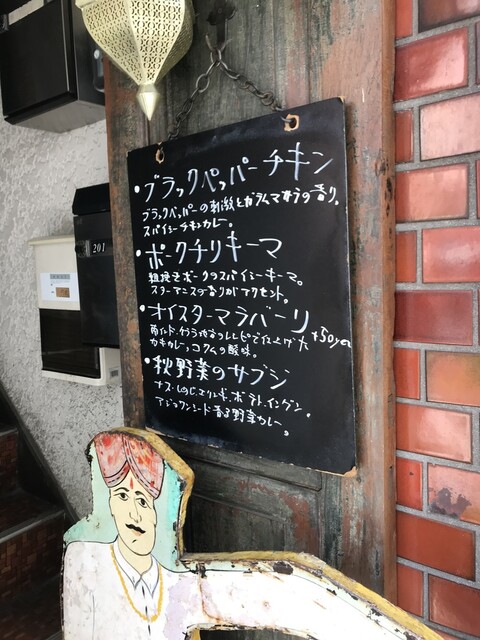 ・ブラックペッパーチキン
ブラックペッパーの刺激とガラムマサラの香り。
スパイシーチキンカレー。
・ポークチリキーマ
粗挽きポークのスパイシーキーマ。
スターアニスの香りがアクセント。
・オイスターマラバーリ +50yen
南インド・ケララ地方のレシピで仕上げた
カキカレー。コクムの酸味。
・秋野菜のサブジ
ナス・しめじ、エリンギ、ポテト、インゲン。
アジョワンシード香る野菜カレー。
201